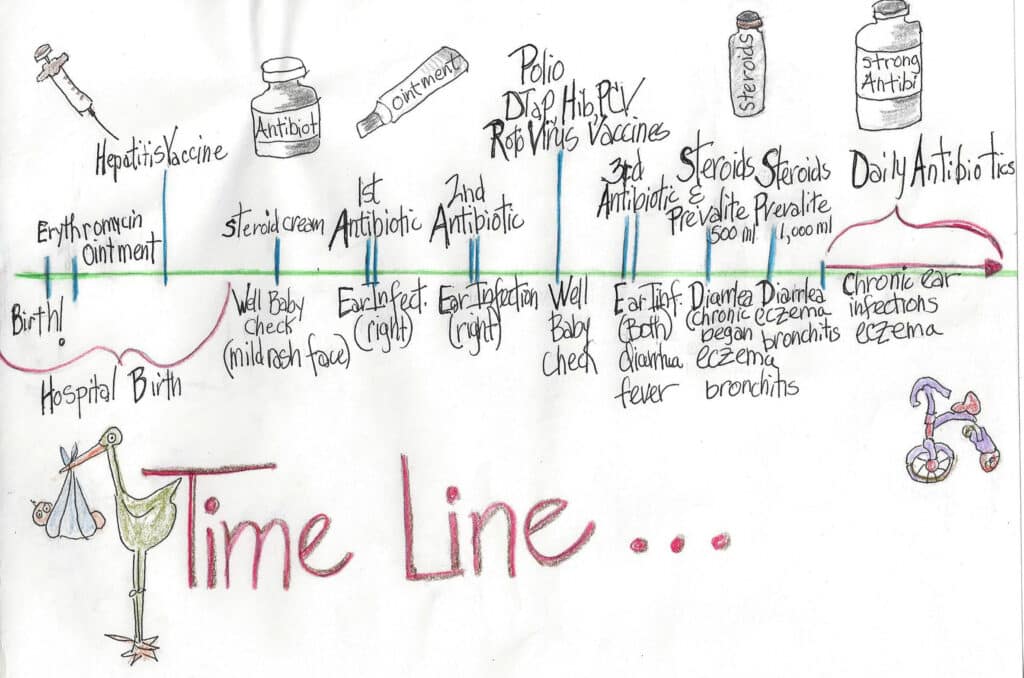 Hepatitis Vaccine
Erythromycin
Ointment
Birth!
Hospital Birth
Antibiot
Steroid cream
Well Baby
Check
(mild rash face)
ointment
1st
Antibiotic
Ear Infect.
(right)
2nd
Antibiotic
Ear Infection
(right)
Polio
DTaP, Hib, PCV
Roto Virus Vaccines
Well
Baby
Check
3rd
Antibiotic
Ear Inf.
(Both)
diarrhea
fever
steroids
Steroids
&
Prevalite
500 ml
Diarrhea
(chronic
began
eczema
bronchitis
Steroids
Prevalite
1,000 ml
Diarrhea
eczema
bronchitis
Strong
Antibi
Daily Antibiotics
Chronic ear
infections
eczema
Time Line ...